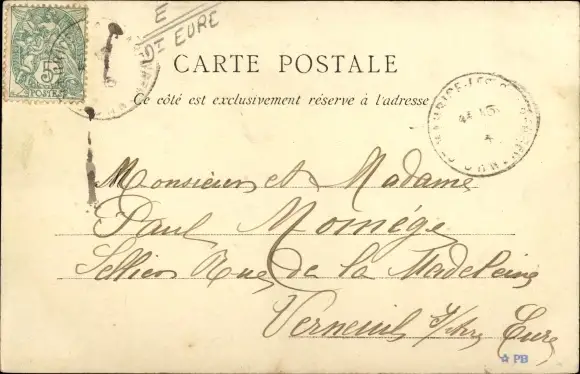 E
Dt EURE
5c
POSTES
CARTE POSTALE
Ce côté est exclusivement réservé à l'adresse
Monsieur et Madame
Paul Momége
Sellier Rue de la Madeleine
Verneuil s/Avre Eure
PB